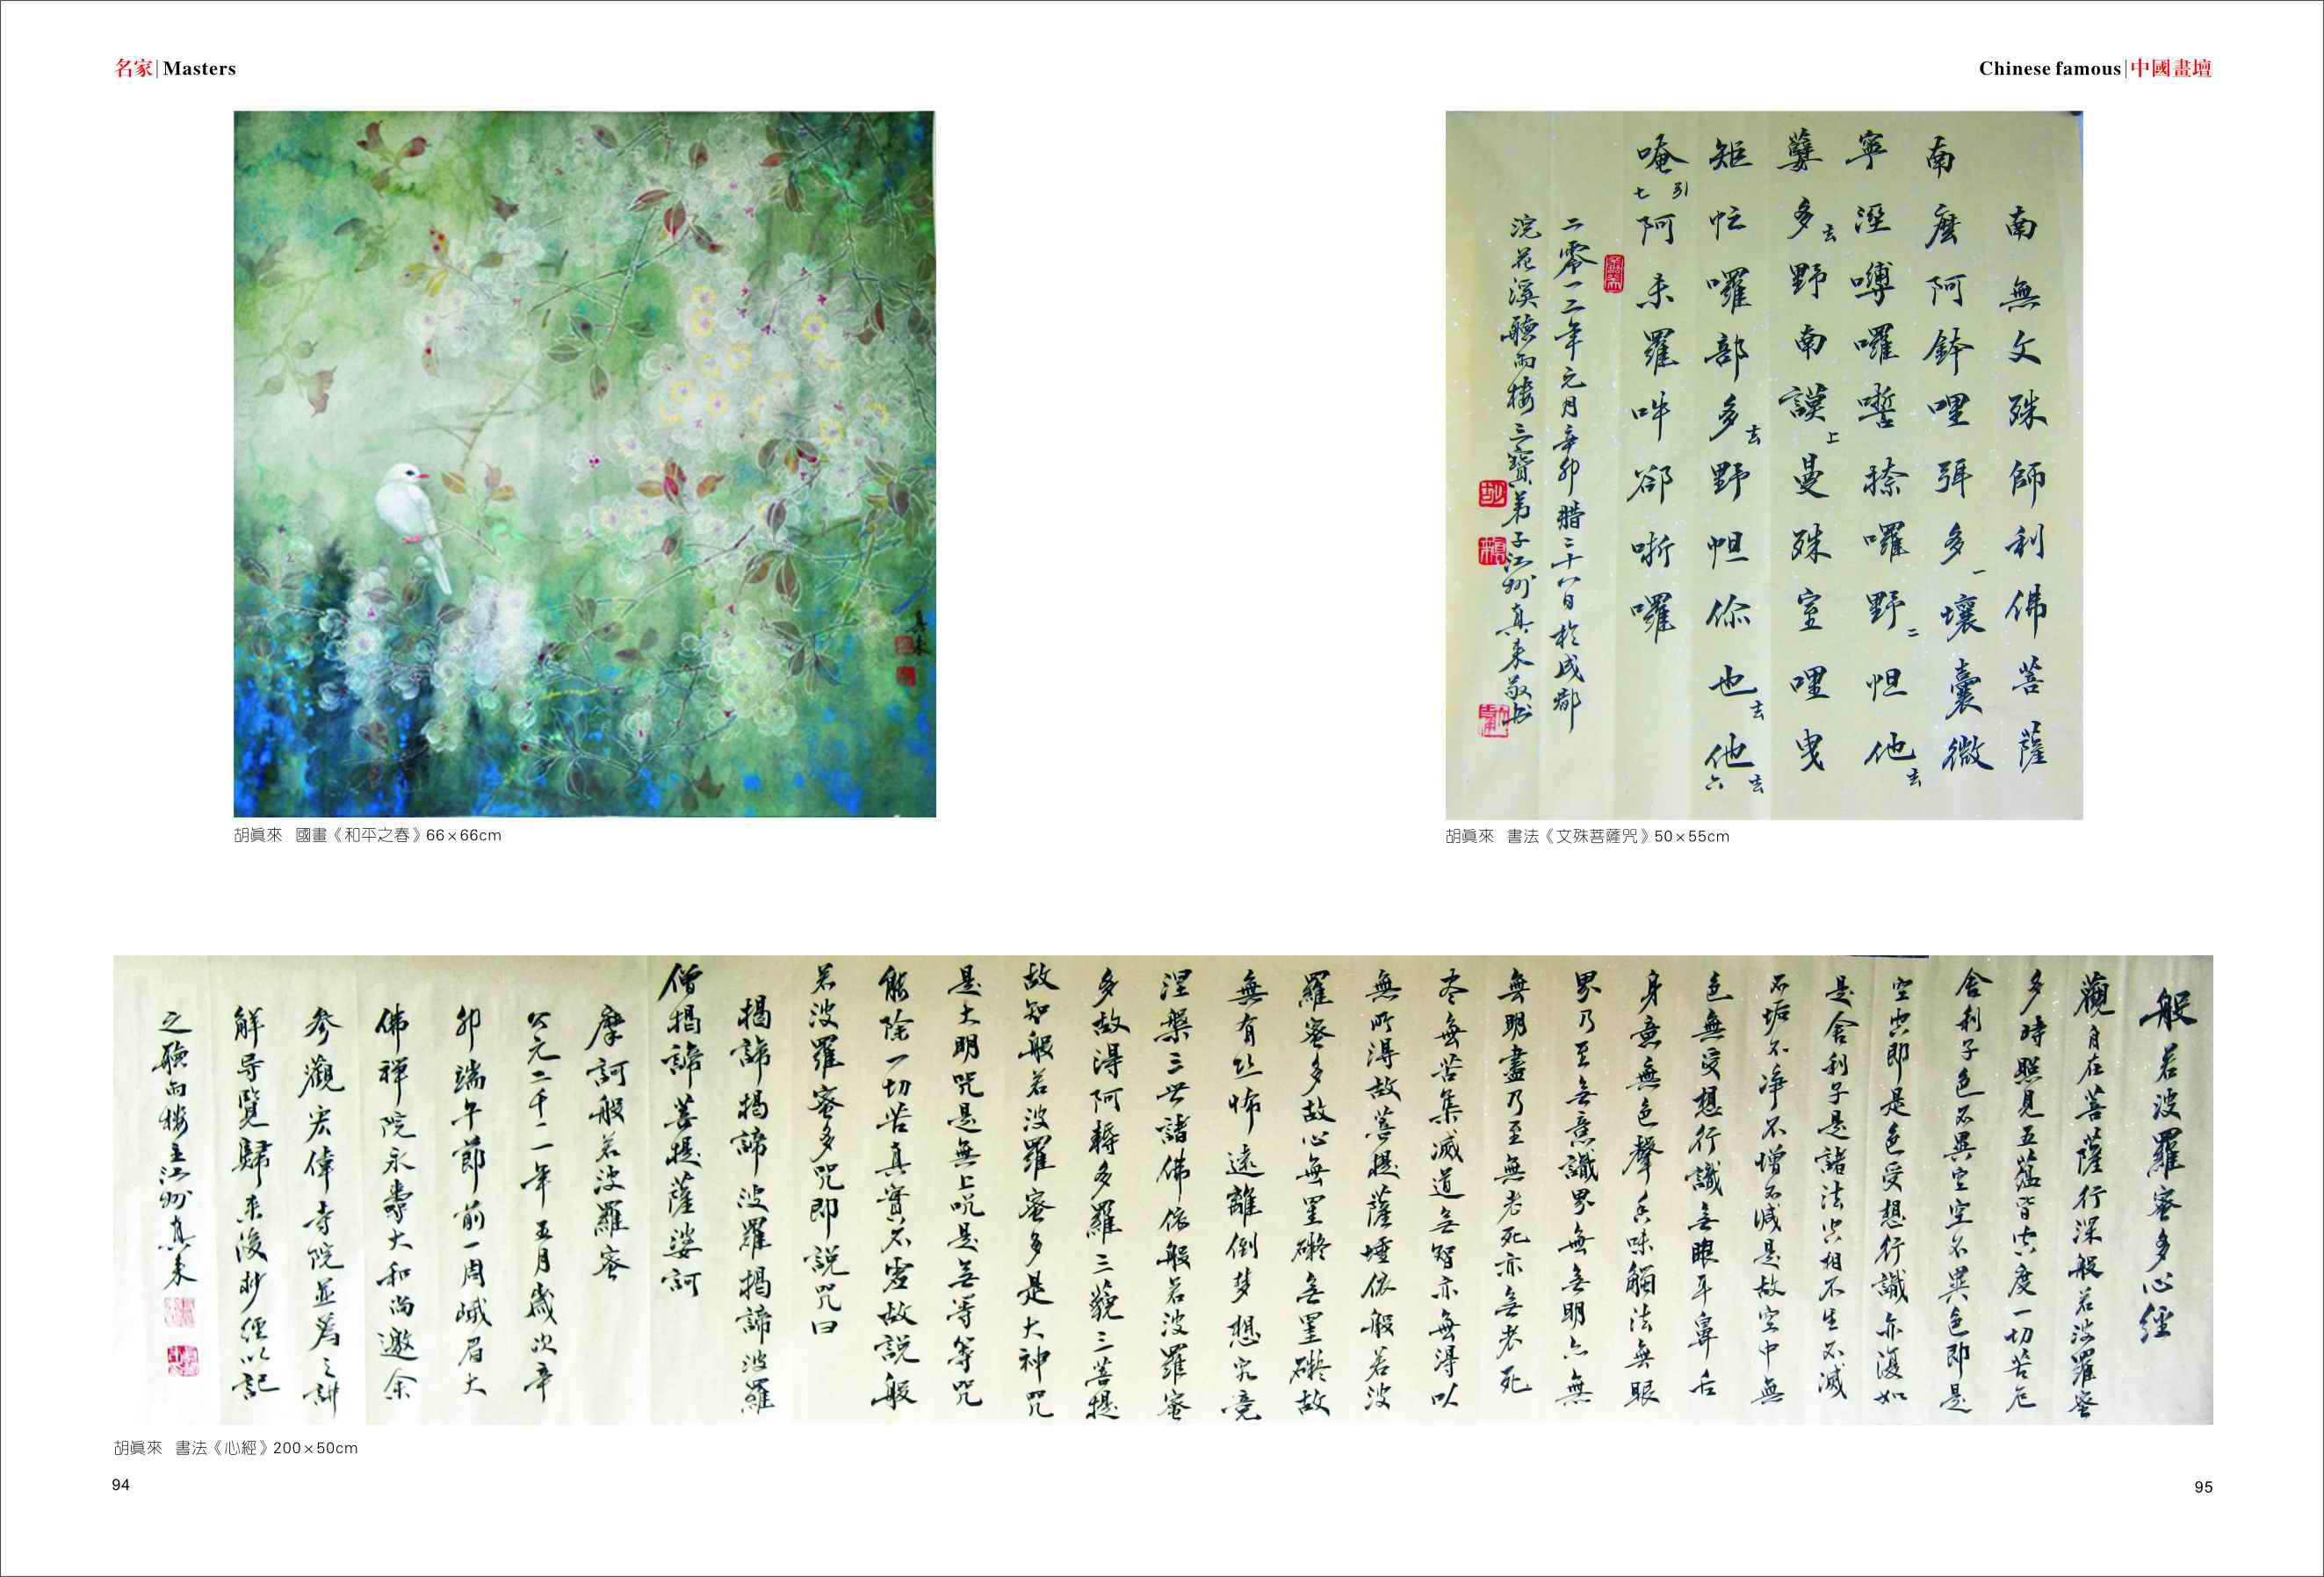 名家|Masters
Chinese famous|中國畫壇
真来
胡眞來 國畫《和平之春》66×66cm
南無文殊師利佛菩薩
南麼阿鉢哩弭多一壤囊微
寧溼嚩囉 捺囉野二怛他去
蘖多去野南謨上曼殊室哩曳
矩忙囉部多去野怛你也去他六去
唵引七阿末羅吽 囉
二零一二年元月辛卯腊二十八日於成都
浣花溪聽雨楼三寶弟子江州真来敬书
胡眞來 書法《文殊菩薩咒》50×55cm
般若波羅蜜多心經
觀自在菩薩行深般若波羅蜜
多時照見五蕴皆空度一切苦厄
舍利子色不異空空不異色即是
空空即是色受想行識亦復如
是舍利子是諸法空相不生不滅
不垢不净不增不减是故空中無
色無受想行識无眼耳鼻舌
身意無色聲香味觸法無眼
界乃至无意識界無无明亦無
無明盡乃至無老死亦无老死
尽無苦集滅道无智亦無得以
無所得故菩提薩埵依般若波
羅蜜多故心無罣礙无罣礙故
無有恐怖遠離倒梦想究竟
涅槃三世諸佛依般若波羅蜜
多故得阿耨多羅三藐三菩提
故知般若波羅蜜多是大神咒
是大明咒是無上咒是无等等咒
能除一切苦真實不虚故説般
若波羅蜜多咒即説咒曰
揭諦揭諦波羅揭諦波羅
僧揭諦菩提薩婆訶
摩訶般若波羅蜜
公元二千一一年五月歲次辛
卯端午節前一周峨眉大
佛禅院永壽大和尚邀余
参觀宏偉寺院並為之講
解导覽歸来後抄經以記
之聽雨楼主江州真来
胡眞來 書法《心經》200×50cm
94
95